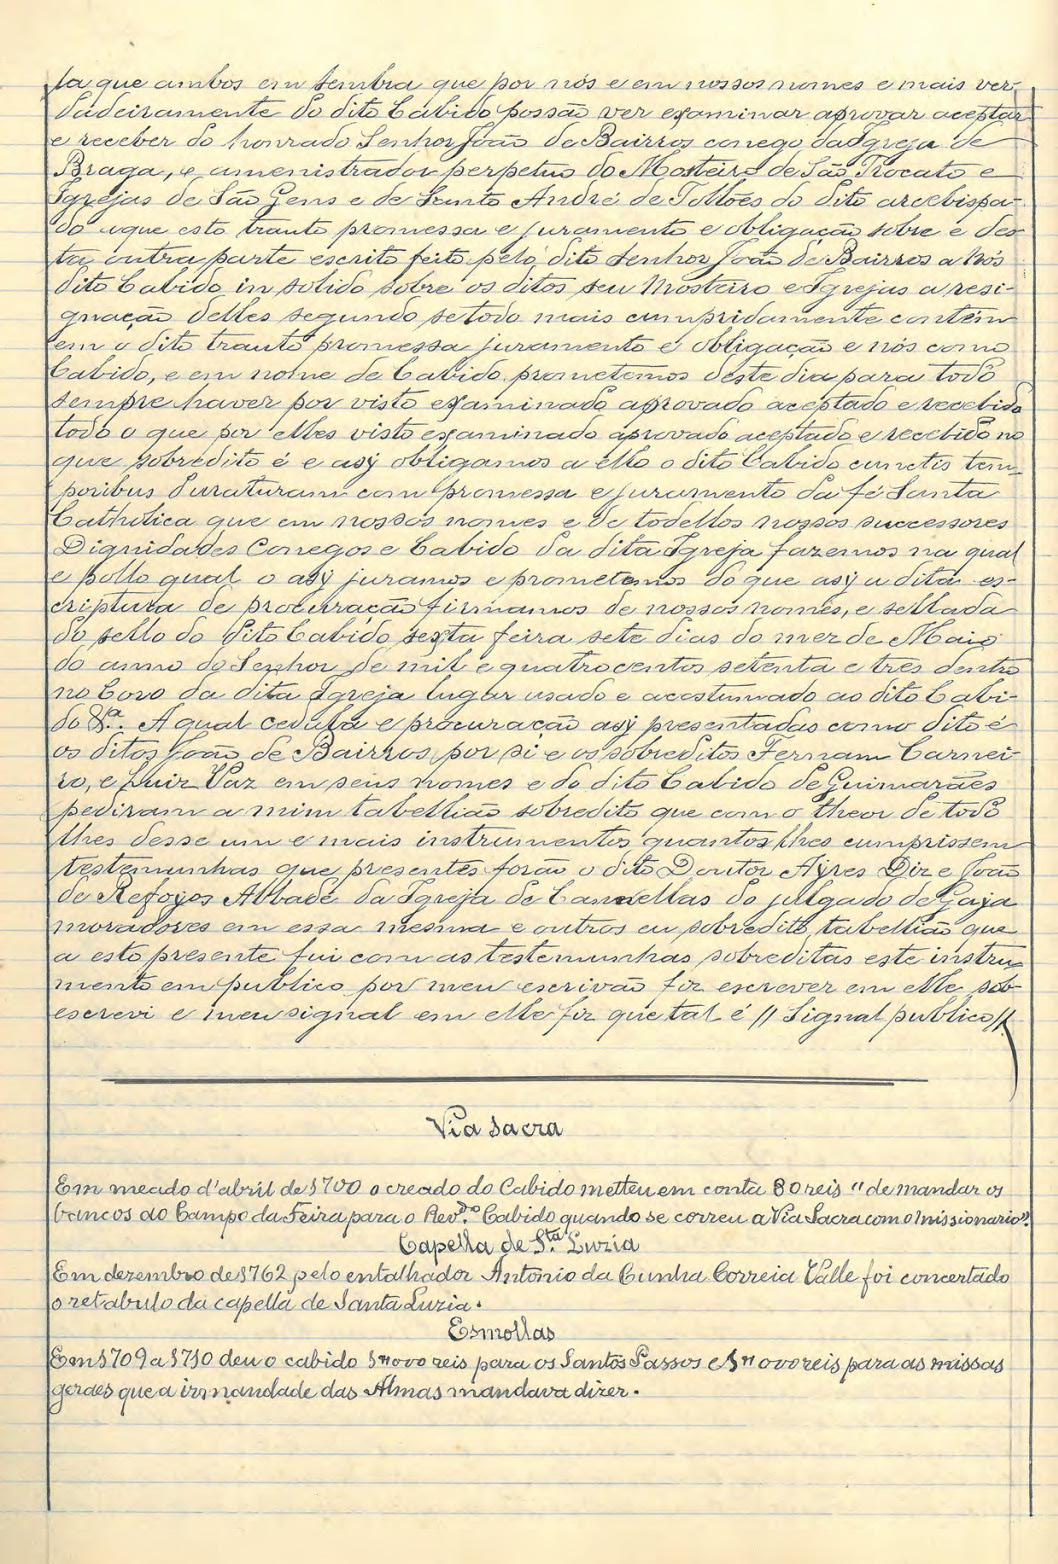 la que ambos em sembra que por nós e em nossos nomes e mais ver-
dadeiramente do dito Cabido possão ver examinar aprovar aceptar
e receber do honrado Senhor João de Bairros conego da Igreja de
Braga, e amenistrador perpetuo do Mosteiro de São Trocato e
Igrejas de São Gens e de Santo André de Tollões do dito arcebispa-
do que esto trauto promessa e juramento e obligação sobre e des-
ta outra parte escrito feito pelo dito senhor João de Bairros a Nós
dito Cabido in solido sobre os ditos seu Mosteiro e Igrejas a resi-
gnação delles segundo se todo mais cumpridamente contêm
em o dito trauto promessa juramento e obligação e nós como
Cabido, e em nome de Cabido prometemos deste dia para todo
sempre haver por visto examinado aprovado aceptado e recebido
todo o que por elles visto examinado aprovado aceptado e recebido no
que sobredito é e asÿ obligamos a ello o dito Cabido cunctis tem-
poribus duraturam com promessa e juramento da fé Santa
Catholica que em nossos nomes e de todollos nossos successores
Dignidades Conegos e Cabido da dita Igreja fazemos na qual
e pollo qual o asÿ juramos e prometemos do que asÿ a dita es-
criptura de procuração firmamos de nossos nomes, e sellada
do sello do dito Cabido sexta feira sete dias do mez de Maio
do anno do Senhor de mil e quatrocentos setenta e tres dentro
no Coro da dita Igreja lugar usado e acostumado ao dito Cabi-
do &ª. A qual cedula e procuração asÿ presentadas como dito é
os ditos João de Bairros por si e os sobreditos Fernam Carnei-
ro, e Luiz Vaz em seus nomes e do dito Cabido de Guimarães
pediram a mim tabellião sobredito que com o theor de todo
lhes desse um e mais instrumentos quantos lhes cumprissem
testemunhas que presentes forão o dito Doutor Ayres Diz e João
de Refoyos Abbade da Igreja de Cannellas do julgado de Gaya
moradores em essa mesma e outros eu sobredito tabellião que
a esto presente fui com as testemunhas sobreditas este instru-
mento em publico por meu escrivão fiz escrever em elle sob-
escrevi e meu signal em elle fiz que tal é // Signal publico //
Via Sacra
Em meado d'abril de 1700 o creado do Cabido metteu em conta 80 reis "de mandar os
bancos ao Campo da Feira para o Rev.do Cabido quando se correu a Via Sacra com o missionario".
Capella de S.ta Luzia
Em dezembro de 1762 pelo entalhador Antonio da Cunha Correia Valle foi concertado
o retabulo da capella de Santa Luzia.
Esmollas
Em 1709 a 1710 deu o cabido reis para os Santos Passos e reis para as missas
geraes que a irmandade das Almas mandava dizer.